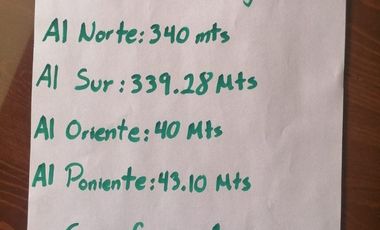 Al Norte: 340 mts
Al Sur: 339.28 Mts
Al Oriente: 40 Mts
Al Poniente: 43.10 Mts